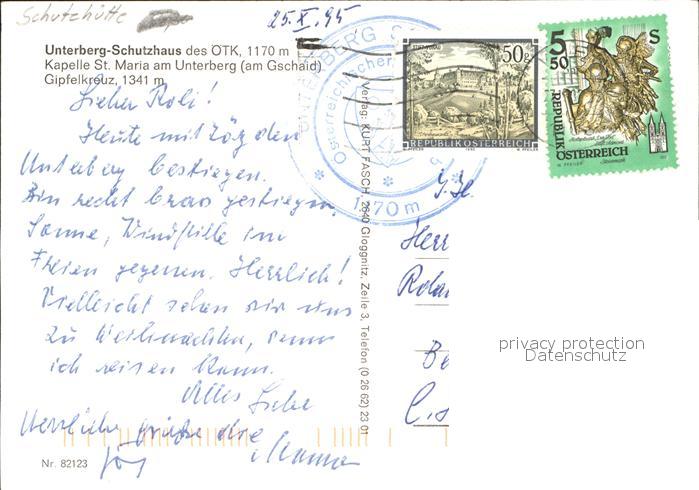 Schutzhütte
25.X.95
Unterberg-Schutzhaus des ÖTK, 1170 m
Kapelle St. Maria am Unterberg (am Gschaid)
Gipfelkreuz, 1341 m
Lieber Roli!
Heute mit Jörg den
Unterberg bestiegen.
Bin recht brav gestiegen,
Sonne, Windstille im
Freien gegessen. Herrlich!
Vielleicht sehen wir uns
zu Weihnachten, wenn
ich reisen kann.
Alles Liebe
Mama
Herzliche Grüße
Jörg
Nr. 82123
Verlag: KURT FASCH, 2640 Gloggnitz, Zeile 3, Telefon (0 26 62) 23 01
1170 m
50g
REPUBLIK ÖSTERREICH
5 50 S
REPUBLIK
ÖSTERREICH
Herr
privacy protection
Datenschutz